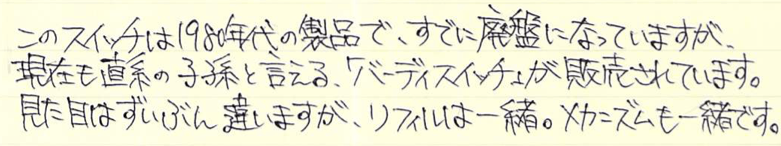 このスイッチは1980年代の製品で、すでに廃盤になっていますが、
現在も直系の子孫と言える、「バーディスイッチ」が販売されています。
見た目はずいぶん違いますが、リフィルは一緒。メカニズムも一緒です。